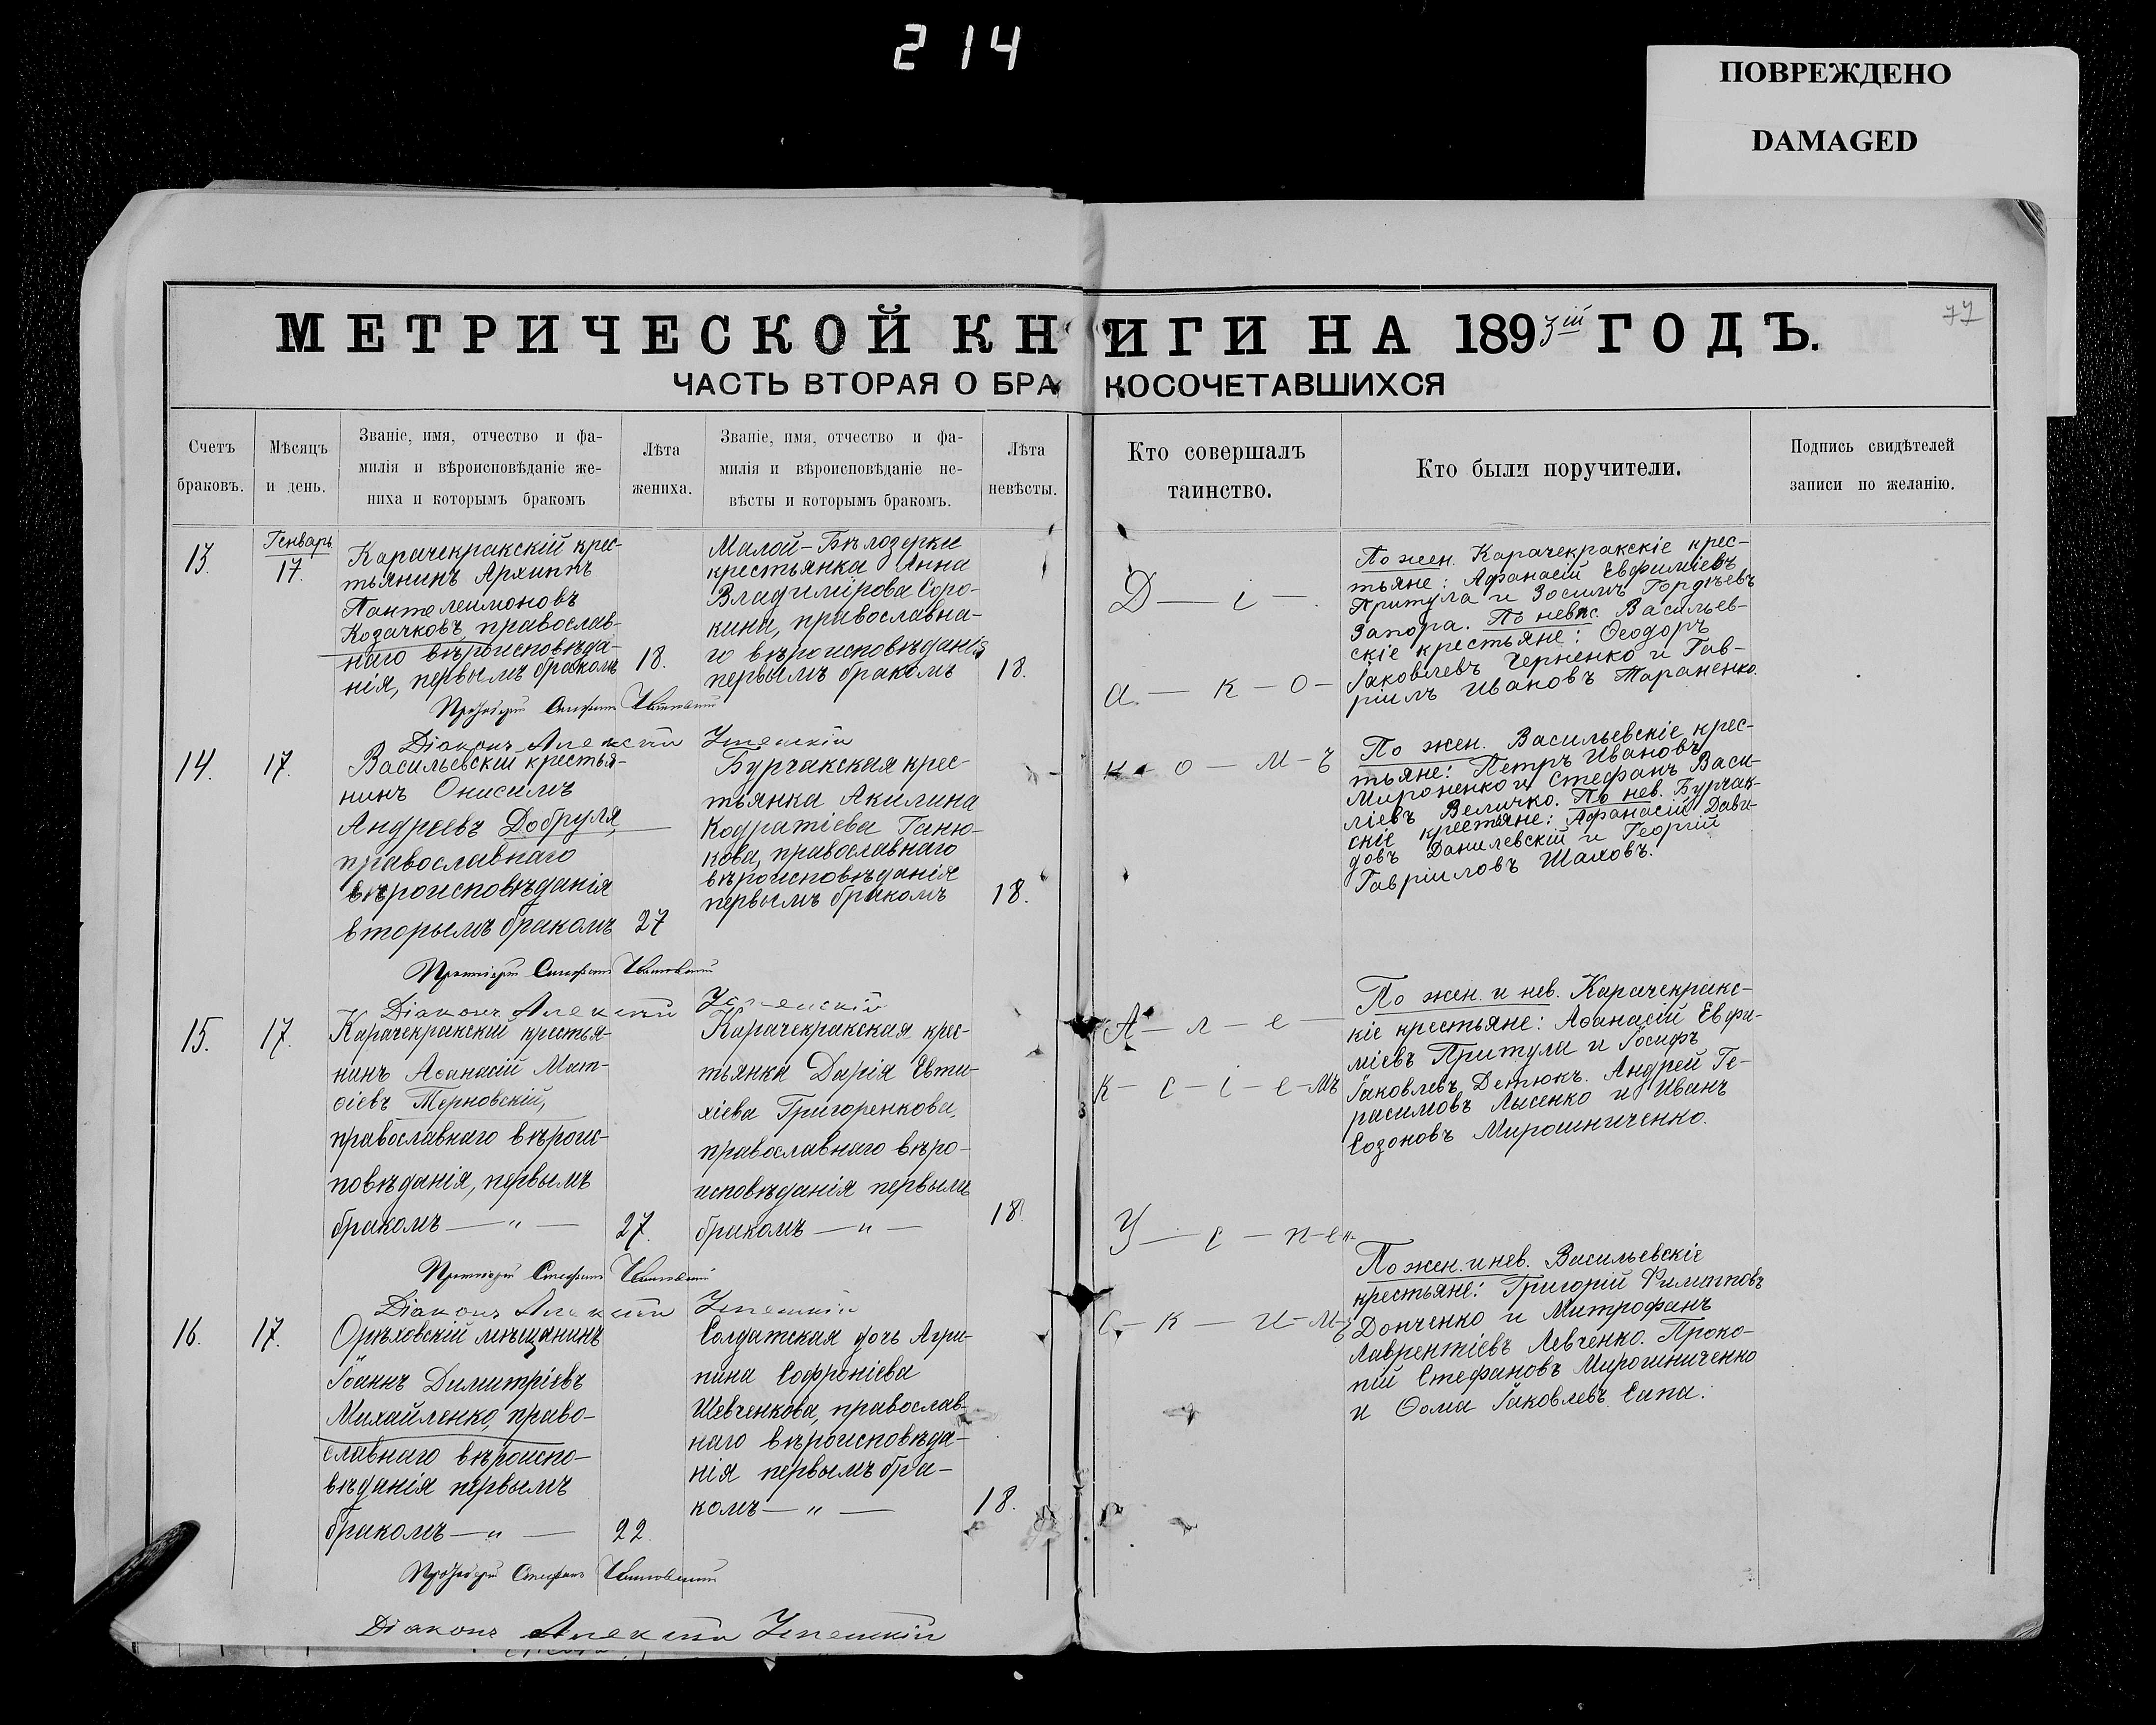 214
ПОВРЕЖДЕНО
DAMAGED
77
МЕТРИЧЕСКОЙ КНИГИ НА 1893ій ГОДЪ.
ЧАСТЬ ВТОРАЯ О БРАКОСОЧЕТАВШИХСЯ
Счетъ
браковъ.
Мѣсяцъ
и день.
Званіе, имя, отчество и фа-
милія и вѣроисповѣданіе же-
ниха и которымъ бракомъ
Лѣта
жениха.
Званіе, имя, отчество и фа-
милія и вѣроисповѣданіе не-
вѣсты и которымъ бракомъ.
Лѣта
невѣсты.
Кто совершалъ
таинство.
Кто были поручители.
Подпись свидѣтелей
записи по желанію.
13.
Генварь
17.
Карачекракскій крес-
тьянинъ Архиппъ
Пантелеимоновъ
Козачковъ, православ-
наго вѣроисповѣда-
нія, первымъ бракомъ
18.
Малой-Бѣлозерки
крестьянка Анна
Владимірова Соро-
кина, православна-
го вѣроисповѣданія
первымъ бракомъ
18.
Д — і —
а — к — о —
По жен. Карачекракскіе крес-
тьяне: Афанасій Евфиміевъ
Притула и Зосимъ Гордѣевъ
Запора. По невѣс. Васильев-
скіе крестьяне: Ѳеодоръ
Іаковлевъ Черненко и Гав-
ріилъ Ивановъ Тараненко.
Протоіерей Стефанъ
Діаконъ Алексій Успенскій
14.
17.
Васильевскій крестья-
нинъ Онисимъ
Андреевъ Добруля,
православнаго
вѣроисповѣданія
вторымъ бракомъ
27
Бурчакская крес-
тьянка Акилина
Кодратіева Ганю-
кова, православнаго
вѣроисповѣданія
первымъ бракомъ
18.
н — о — м — ъ
По жен. Васильевскіе крес-
тьяне: Петръ Ивановъ
Мироненко и Стефанъ Васи-
ліевъ Величко. По нев. Бурчак-
скіе крестьяне: Афанасій Дави-
довъ Данилевскій и Георгій
Гавріиловъ Шаховъ.
Протоіерей Стефанъ
Діаконъ Алексій Успенскій
15.
17.
Карачекракскій крестья-
нинъ Аѳанасій Мат-
ѳіевъ Терновскій,
православнаго вѣроис-
повѣданія, первымъ
бракомъ — „ —
27.
Карачекракская крес-
тьянка Дарія Евти-
хіева Григоренкова,
православнаго вѣро-
исповѣданія первымъ
бракомъ — „ —
18.
А — л — е —
к — с — і — е — мъ
По жен. и нев. Карачекракс-
кіе крестьяне: Аѳанасій Евфи-
міевъ Притула и Іосифъ
Іаковлевъ Детюкъ. Андрей Ге-
расимовъ Лысенко и Иванъ
Созоновъ Мирошниченко.
Протоіерей Стефанъ
Діаконъ Алексій Успенскій
16.
17.
Орѣховскій мѣщанинъ
Іоаннъ Димитріевъ
Михайленко, право-
славнаго вѣроиспо-
вѣданія первымъ
бракомъ — „ —
22.
Солдатская дочь Агри-
пина Софроніева
Шевченкова, православ-
наго вѣроисповѣда-
нія первымъ бра-
комъ — „ —
18.
У — с — п — ен-
с — к — и — мъ
По жен. и нев. Васильевскіе
крестьяне: Григорій Филипповъ
Донченко и Митрофанъ
Лаврентіевъ Левченко. Проко-
пій Стефановъ Мирошниченко
и Ѳома Іаковлевъ Сапа.
Протоіерей Стефанъ
Діаконъ Алексій Успенскій